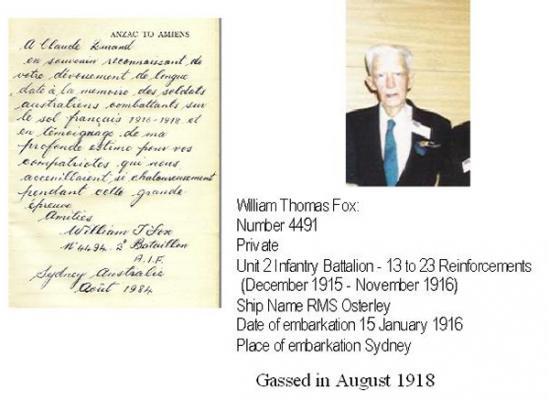 ANZAC TO AMIENS
A Claude Durand
en souvenir reconnaissant de
votre dévouement de longue
date à la memoire des soldats
australiens combattants sur
le sol français 1916-1918 et
en témoignage de ma
profonde estime pour vos
compatriotes qui nous
accueillaient si chaleureusement
pendant cette grande
épreuve
Amitiés
William T Fox
No 4494. 2e Bataillon
A.I.F.
Sydney Australie
Août 1984
William Thomas Fox:
Number 4491
Private
Unit 2 Infantry Battalion - 13 to 23 Reinforcements
(December 1915 - November 1916)
Ship Name RMS Osterley
Date of embarkation 15 January 1916
Place of embarkation Sydney
Gassed in August 1918